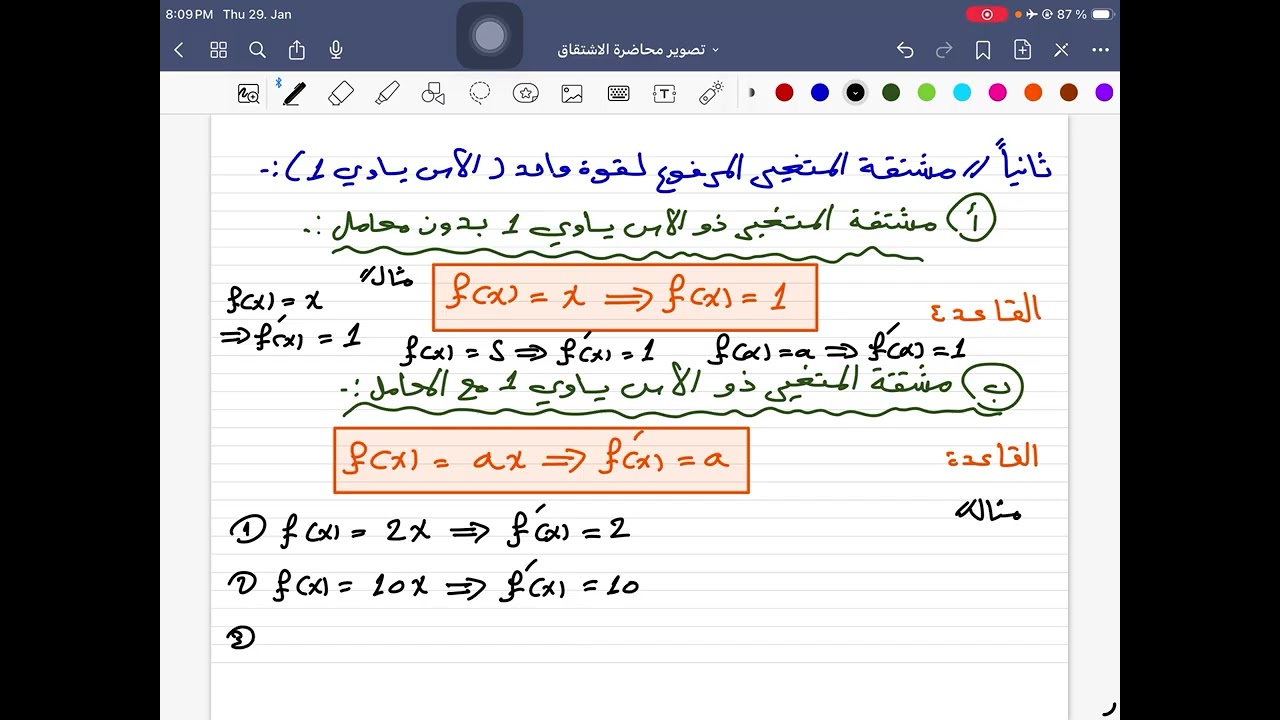 8:09 PM Thu 29. Jan 87 %
تصوير محاضرة الاشتقاق
T
ثانياً // مشتقة المتغير المرفوع لقوة واحد (الأس يساوي 1):-
أ مشتقة المتغير ذو الأس يساوي 1 بدون معامل:-
القاعدة f(x) = x ⟹ f(x) = 1
مثال//
f(x) = x
⟹ f′(x) = 1
f(x) = S ⟹ f′(x) = 1 f(x) = a ⟹ f′(x) = 1
ب مشتقة المتغير ذو الأس يساوي 1 مع المعامل:-
القاعدة f(x) = ax ⟹ f′(x) = a
مثال//
① f(x) = 2x ⟹ f′(x) = 2
② f(x) = 10x ⟹ f′(x) = 10
③